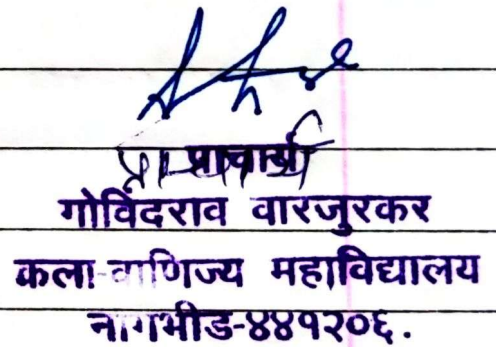 प्राचार्य
गोविंदराव वारजुरकर
कला-वाणिज्य महाविद्यालय
नागभीड-४४१२०६.